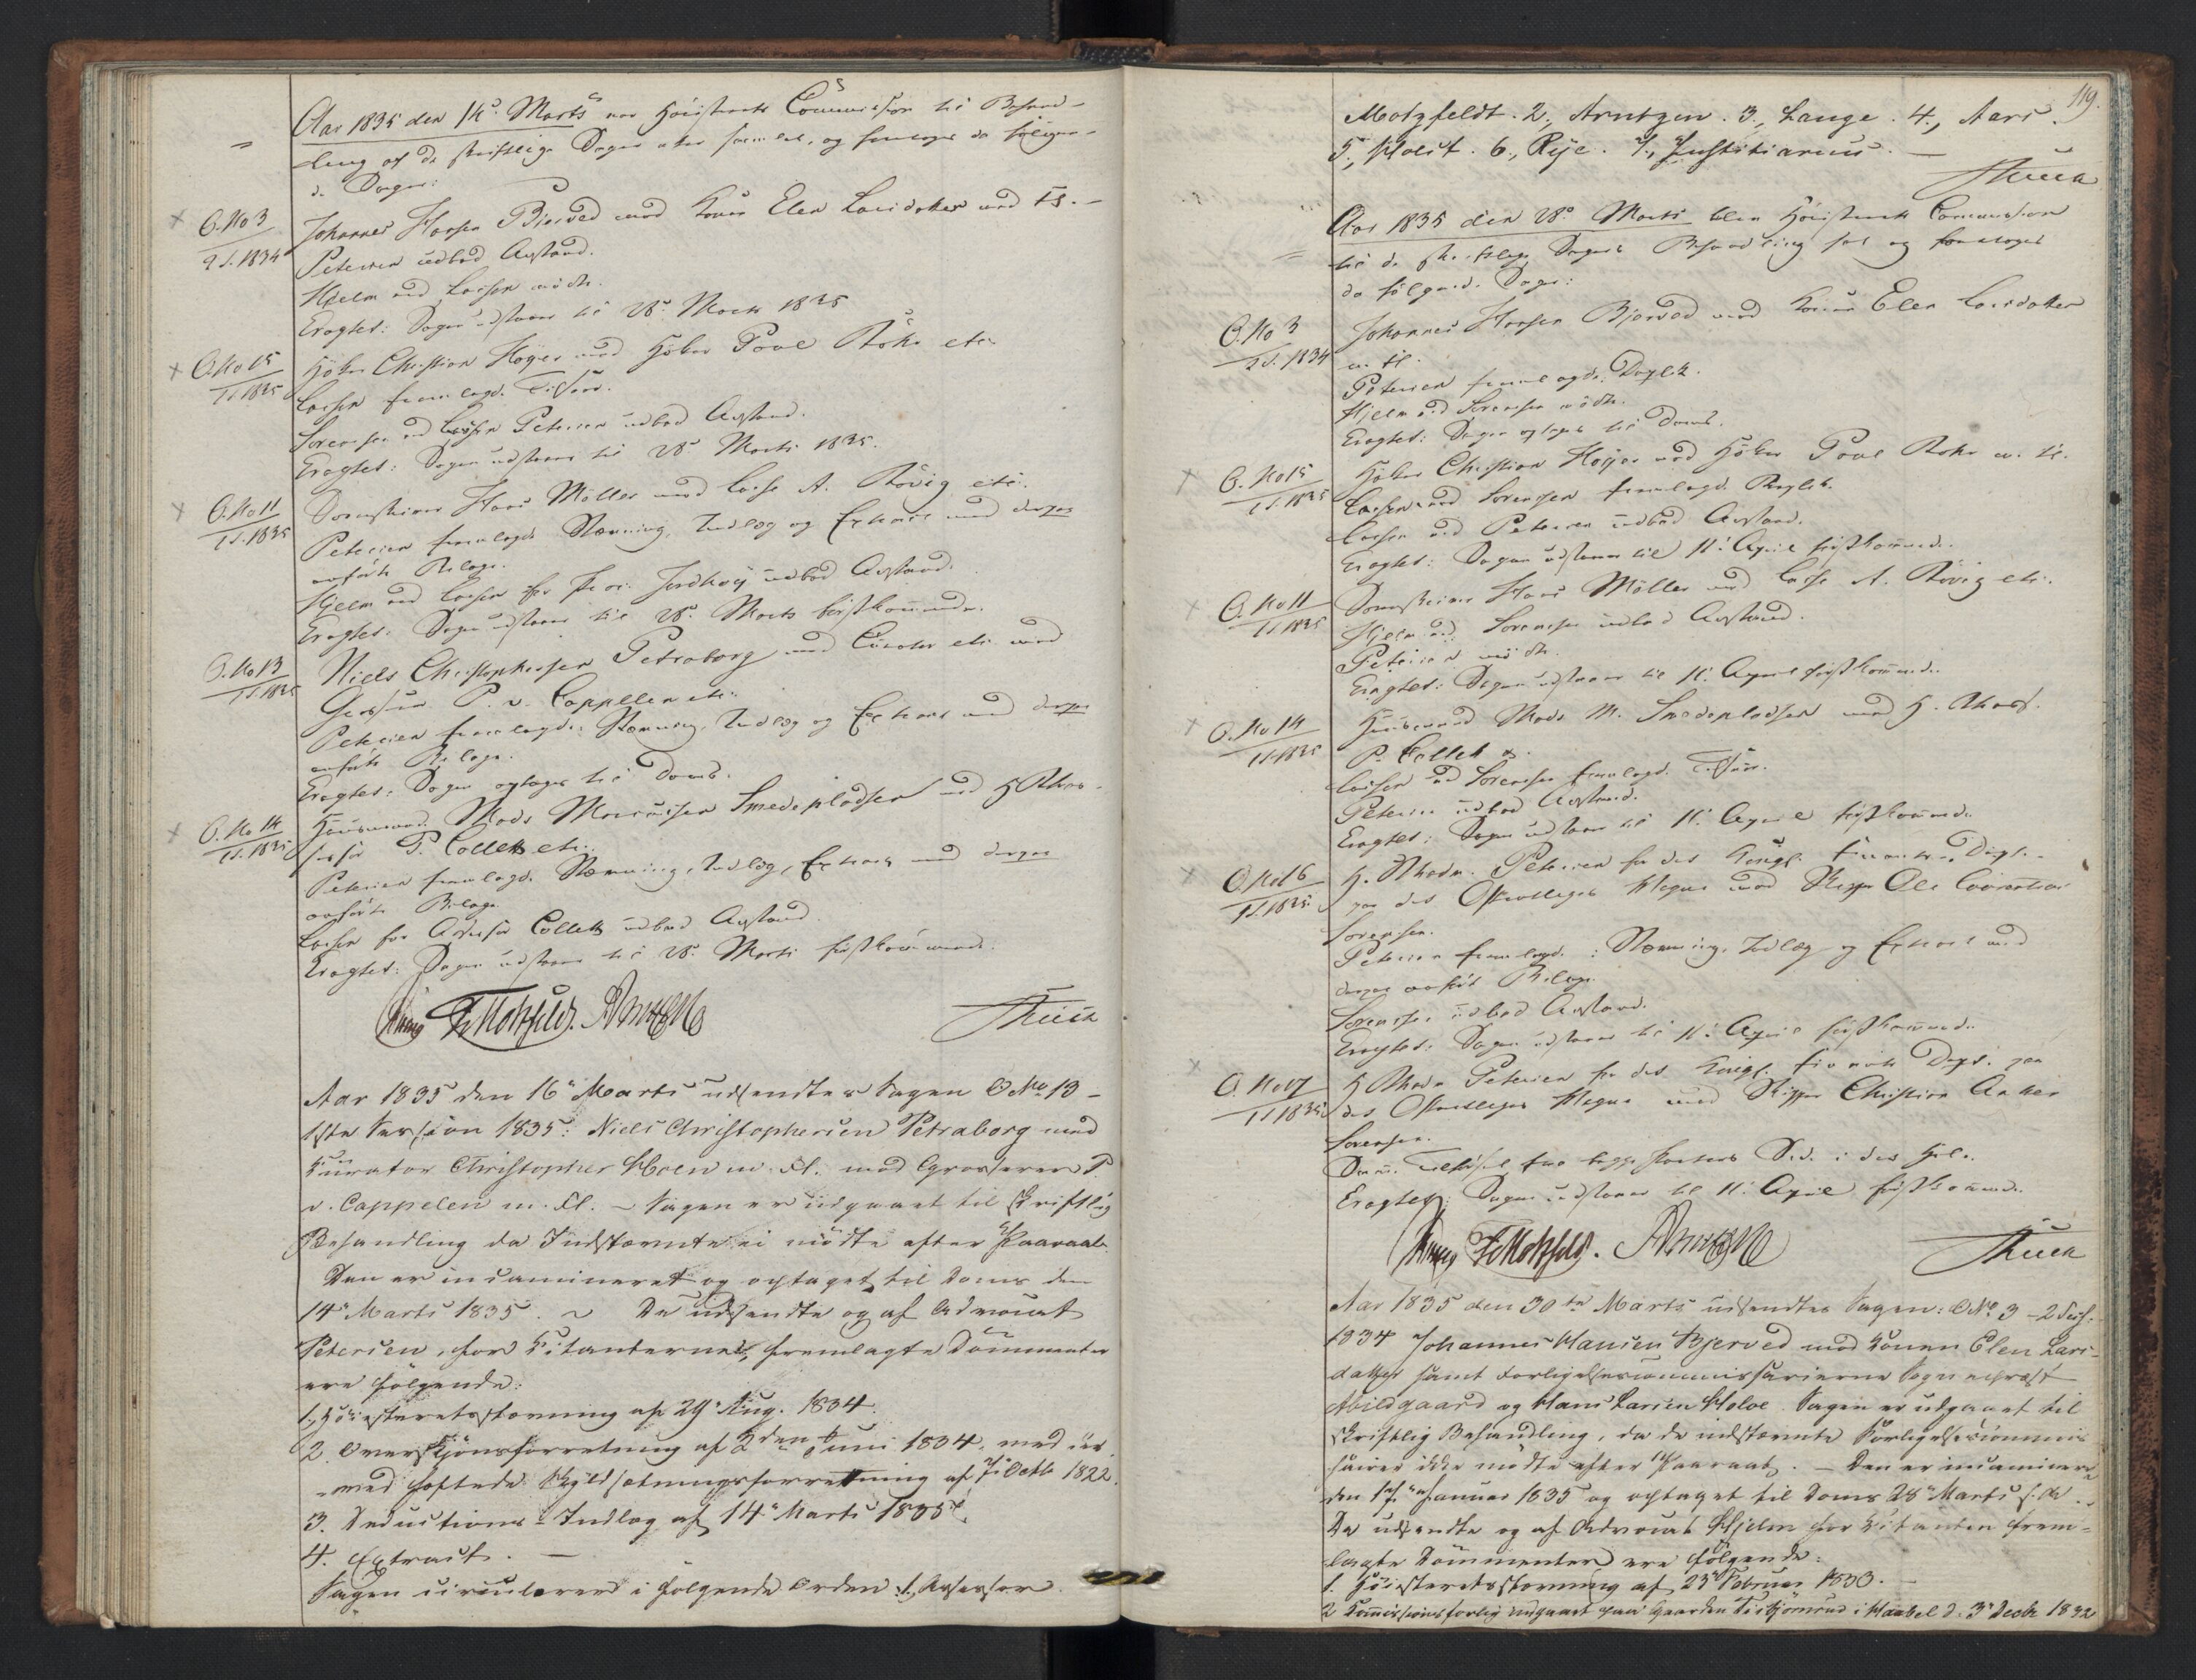 Aar 1835 den 14de Marts var Høiesterets Commission til Behand-
ling af de skriftlige Sager atter samlet, og foretoges da følgen-
de Sager:
O. No 3
2 S. 1834
Johannes Hansen Bjerved mod Konen Elen Larsdatter med Fl. -
Petersen udbad Anstand.
Hjelm ved Larsen mødte.
Eragtet: Sagen udstaaer til 28de Marts 1835
O. No 15
1 S. 1835
Høker Christian Høyer mod Høker Poul Rohr etc.
Larsen fremlagde Tilsvar.
Sørensen ved Petersen udbad Anstand.
Eragtet: Sagen udstaaer til 28de Marts 1835.
O. No 11
1 S. 1835
Hans Møller mod A. Røvig etc.
Petersen fremlagde Stævning, Indlæg og Extract med derpaa
anførte Bilage.
Hjelm ved Larsen for udbad Anstand.
Eragtet: Sagen udstaaer til 28de Marts førstkommende.
O. No 13
1 S. 1835
Niels Christophersen Petraborg med Curator etc. mod
P. v. Cappelen etc.
Petersen fremlagde: Stævning, Indlæg og Extract med derpaa
anførte Bilage.
Eragtet: Sagen optages til Doms.
O. No 14
1 S. 1835
Huusmand Mads Smedepladsen mod
P. Collett etc.
Petersen fremlagde Stævning, Indlæg, Extract med derpaa
anførte Bilage.
Larsen for Assessor Collett udbad Anstand
Eragtet: Sagen udstaaer til 28de Marts førstkommende.
Motzfeldt. Arntzen
Aar 1835 den 16de Marts udsendtes Sagen O No 13 -
1ste Session 1835: Niels Christophersen Petraborg med
Curator Christopher Hoen m. Fl. mod Grosserer P.
v. Cappelen m. Fl. - Sagen er udgaaet til skriftlig
Behandling da Indstævnte ei mødte efter Paaraab.
Den er incamineret og optaget til Doms den
14de Marts 1835. De udsendte og af Advocat
Petersen, for Citanterne, fremlagte Documenter
ere følgende:
1, Høiesteretsstævning af 29de Aug. 1834.
2. Overskjønsforretning af 2den Juni 1834, med der-
med heftede Skyldsætningsforretning af 7de Octb 1822.
3. Deductions-Indlæg af 14de Marts 1835.
4. Extract. -
Sagen circulerer i følgende Orden: 1, Assessor
119.
Motzfeldt. 2, Arntzen. 3, Lange. 4, Aars.
5, Holst. 6, Rye. 7, Justitiarius. -
Aar 1835 den 28de Marts blev Høiesterets Commission
til de skriftlige Sagers Behandling sat og foretoges
da følgende Sager:
O. No 3
2 S. 1834
Johannes Hansen Bjerved mod Konen Elen Larsdatter
m. fl.
Petersen fremlagde Duplik.
Hjelm ved Sørensen mødte.
Eragtet: Sagen optages til Doms.
O. No 15
1 S. 1835
Høker Christian Høyer mod Høker Poul Rohr m. fl.
Larsen ved Sørensen fremlagde Replik.
Larsen ved Petersen udbad Anstand.
Eragtet: Sagen udstaaer til 11te April førstkommende.
O. No 11
1 S. 1835
Hans Møller mod A. Røvig etc.
Hjelm ved Sørensen udbad Anstand.
Petersen mødte.
Eragtet: Sagen udstaaer til 11te April førstkommende.
O. No 14
1 S. 1835
Huusmand Mads M. Smedepladsen mod
P. Collett
Larsen ved Sørensen fremlagde Tilsvar.
Petersen udbad Anstand.
Eragtet: Sagen udstaaer til 11te April førstkommende.
O. No 16
1 S. 1835
H. Petersen for det Kongl. Finants Dept.
paa det Offentliges Vegne mod Skipper Ole
Sørensen.
Petersen fremlagde: Stævning, Indlæg og Extract med
derpaa anførte Bilage.
Sørensen udbad Anstand.
Eragtet: Sagen udstaaer til 11te April førstkommende.
O. No 17
1 S. 1835
H. Petersen for det Kongl. Finants Dept. paa
det Offentliges Vegne mod Skipper Christian Anker
Sørensen.
Samme Tilførsel fra begge Parters Side i det Hele.
Eragtet: Sagen udstaaer til 11te April førstkommende.
Motzfeldt. Arntzen
Aar 1835 den 30te Marts udsendtes Sagen: O No 3 - 2 Sess.
1834 Johannes Hansen Bjerved mod Konen Elen Lars-
datter samt Forligelsescommissairerne Sognepræst
Abildgaard og Hans Larsen Holoe. Sagen er udgaaet til
skriftlig Behandling, da de indstævnte Forligelsescommis-
sairer ikke mødte efter Paaraab. - Den er incamineret
den 17de Januar 1835 og optaget til Doms 28de Marts s. A.
De udsendte og af Advocat Hjelm for Citanten frem-
lagte Documenter ere følgende:
1. Høiesteretsstævning af 23de Februar 1833. -
2 Commissionsforlig indgaaet paa Gaarden i Haabel d. 3de Decbr 1832